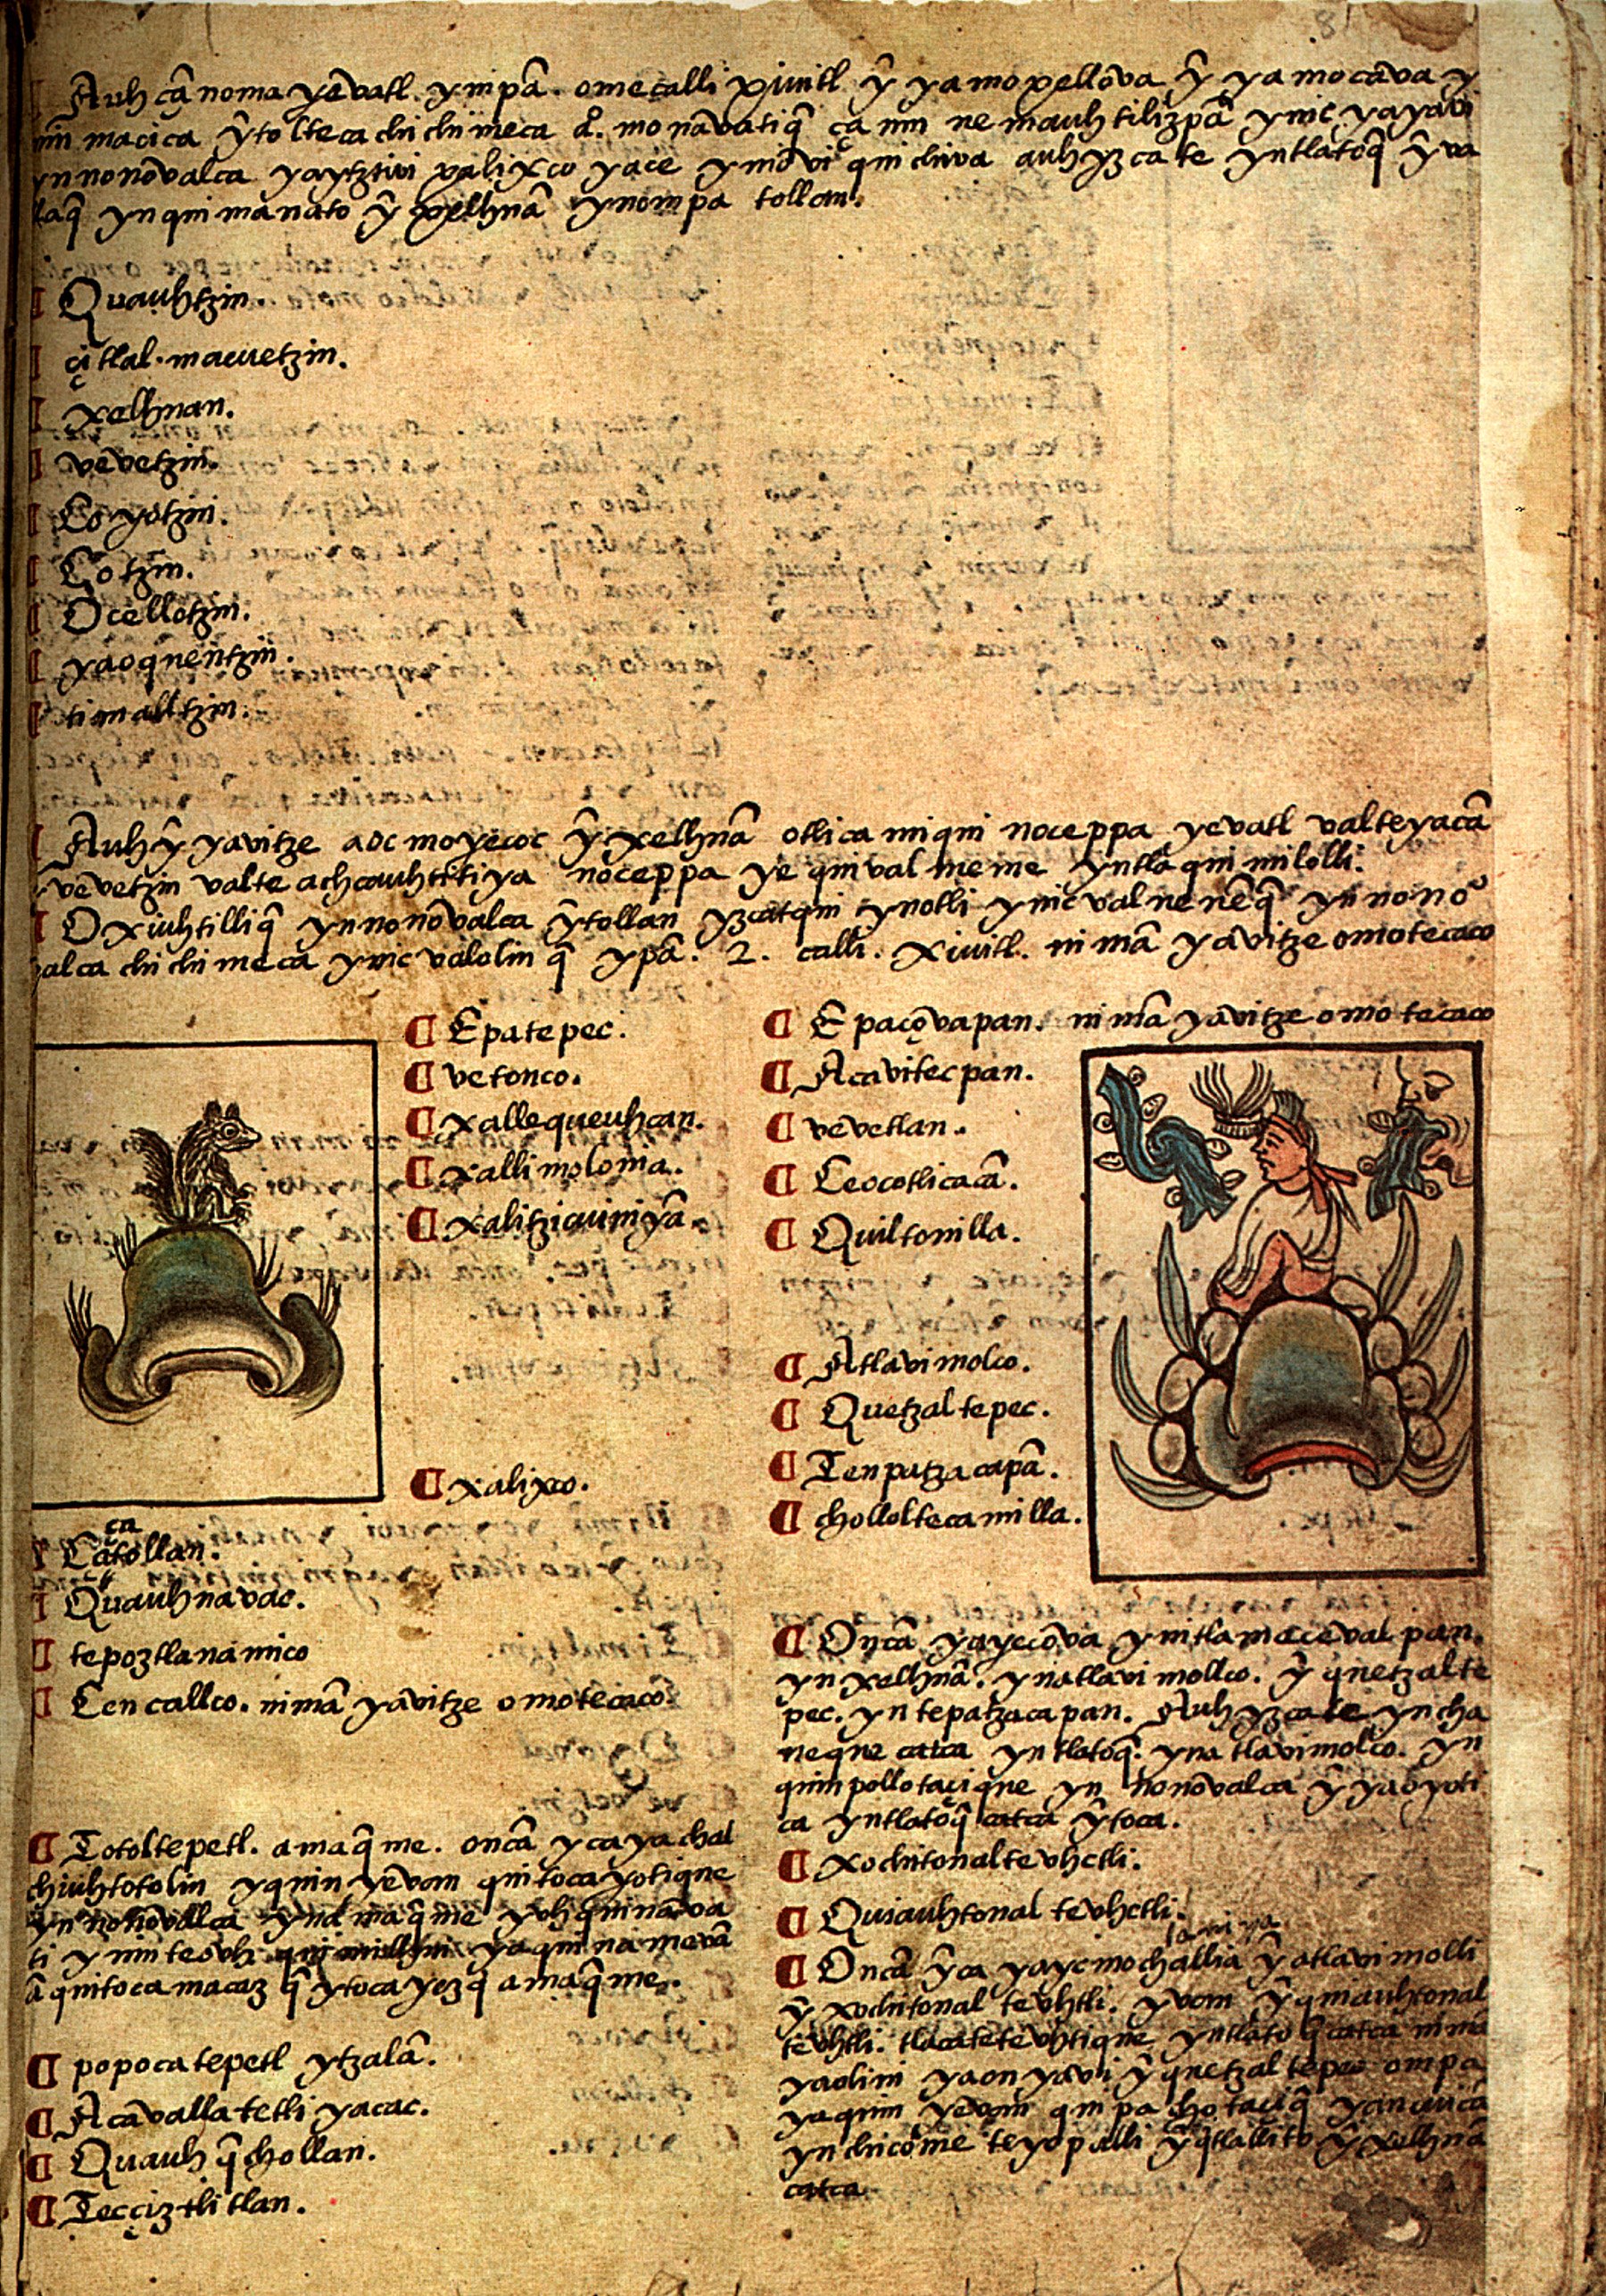 Auh çā noma yēvatl. ympā. omecalli xivitl ȳ yamoxellōva ȳ yamocāva y
macica ȳtolteca chichimeca &. monāvatiq̄ çanin nemauhtilizpā ynic yayavi
ynnonōvalca yaytztivi xalixco yace ynōvi quichiva auh yzcate yntlatōq̄ ȳva
laq̄ ynquimanato ȳ xelhuā ynompa tollan.
¶ Quauhtzin.
¶ çitlal.macuetzin.
¶ xelhuan.
¶ vēvetzin.
¶ Coyotzin.
¶ Cotzin.
¶ Ocellotzin.
¶ yaoquentzin.
¶ timalltzin.
¶ Auh ȳ yavitze aoc moyecoc ȳ xelhuā otlica miqui noceppa yevatl valteyacā
vevetzin valteachcauhtitiya noceppa ye quivalmeme yntlaquimilolli.
¶ Oxiuhtilliq̄ ynnonōvalca ȳtollan yzcatqui ynotli ynic valnenēq̄ ynnono
alca chichimeca ynic vālolinq̄ ypā. 2. calli. xivitl. nimā yavitze omotecaco
¶ Epatepec.
¶ vetonco.
¶ xallequeuhcan.
¶ xallimoloma.
¶ xalitzicuiniyā.
¶ xalixco.
¶ Epaçōvapan. nimā yāvitze omotecaco
¶ Acavitecpan.
¶ vēvetlan.
¶ Ceocotlicacā.
¶ Quiltonilla.
¶ Atlavimolco.
¶ Quetzaltepec.
¶ Tenputzacapā.
¶ cholloltecamilla.
ca
¶ Catollan.
¶ Quauhnavac.
¶ tepoztlanāmico
¶ Cencallco. nimā yāvitze omotecaco
¶ Totoltepetl. amaq̄me. oncā ycayachal
chiuhtotolin yquin yēvan quitocayotique
ynnonōvalca ynamaq̄me yvhquināva
ti yninteovh yaquinamevā
ā quitocamacaz q̄ ytocayezq̄ amaq̄me.
¶ popocatepetl ytzalā.
¶ Acāvallatetli yacac.
¶ Quauhq̄chollan.
¶ Tecçiztlitlan.
¶ Oncā yayecōva ynitlamacēvalpan.
yn xelhuā. ynatlavimollco. ȳ quetzalte
pec. yn tepatzacapan. Auh yzcate yncha
neque catca yntlatoq̄. ynatlavimolco. yn
quimpollotaçique yn nonōvalca ȳ yaoyoti
ca yntlatoq̄ catca ȳtoca.
¶ xochitonaltevhctli.
¶ Quiauhtonal tevhctli.
¶ Oncā ȳca yayemochallia ȳ atlavimolli
ȳ xochitonal tevhtli. yvan ȳ quiauhtonal
tevhtli. tlacatetevhtique yntlatoq̄ catca nimā
yaolini yaonyavi ȳ quetzaltepec ompa
yaquim yēvan quipachotaciq̄ yancuicā
ynchicōme teyopalli ȳ q̄tlallito ȳ xelhuā
catca